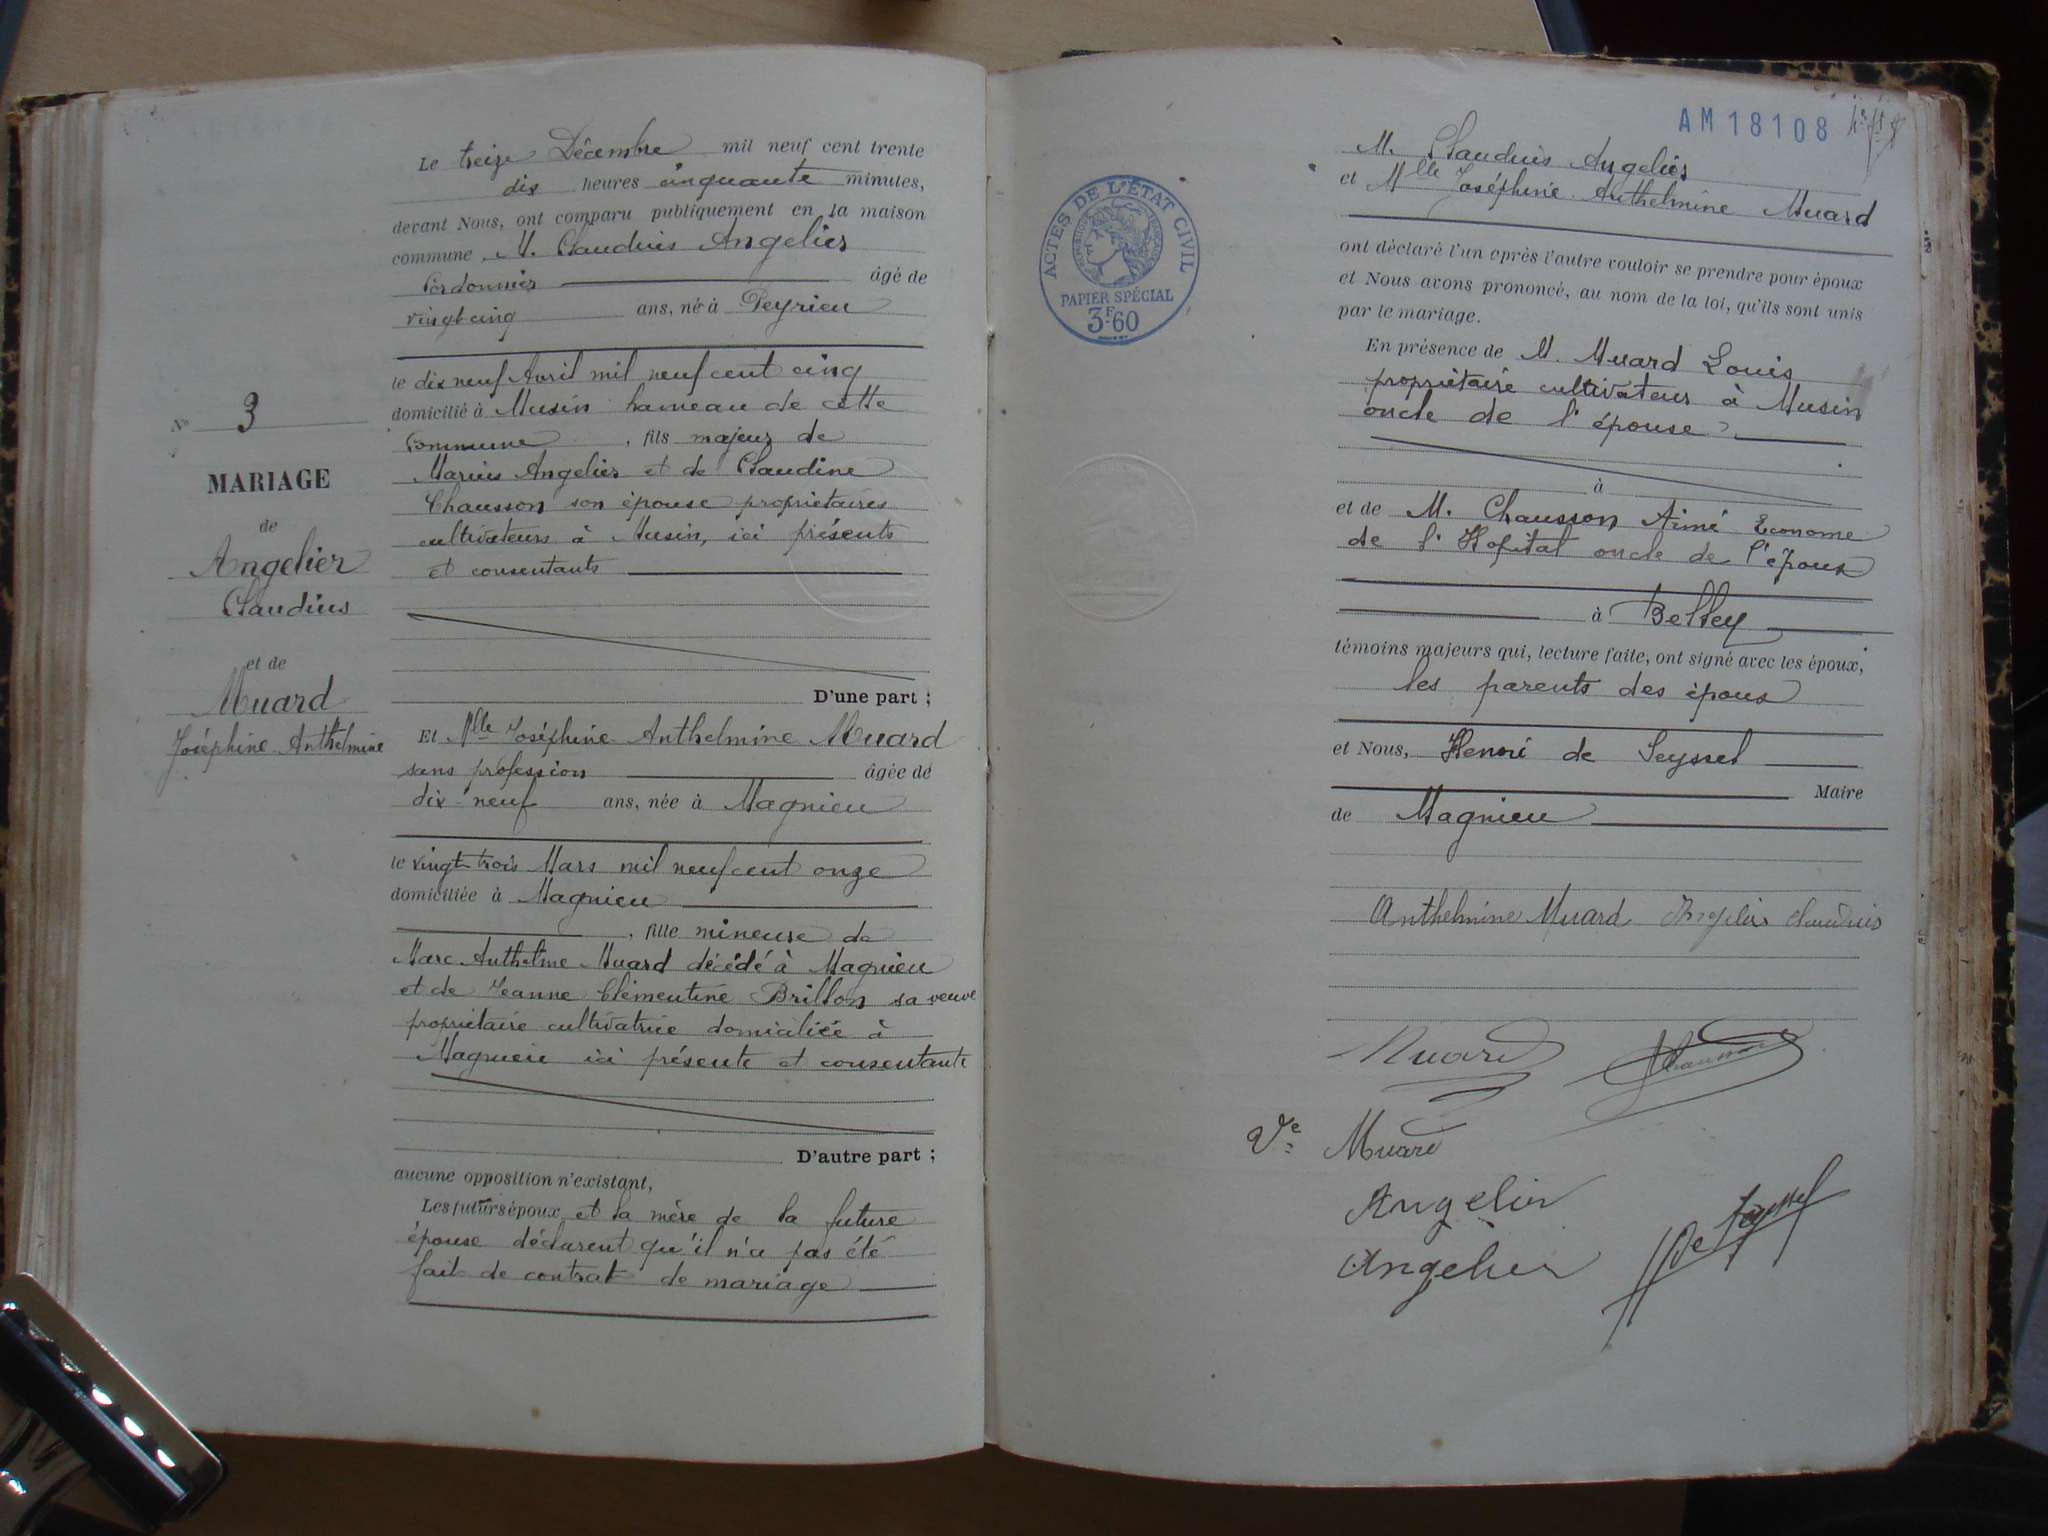 Le treize Décembre mil neuf cent trente
dix heures cinquante minutes,
devant Nous, ont comparu publiquement en la maison
commune M. Claudius Angelier
Cordonnier âgé de
vingt cinq ans, né à Peyrieu
le dix neuf Avril mil neuf cent cinq
domicilié à Musin hameau de cette
Commune, fils majeur de
Marius Angelier et de Claudine
Chausson son épouse propriétaires
cultivateurs à Musin, ici présents
et consentants
D'une part ;
Et Mlle Joséphine Anthelmine Muard
sans profession âgée de
dix-neuf ans, née à Magnieu
le vingt-trois Mars mil neuf cent onze
domiciliée à Magnieu
, fille mineure de
Marc Anthelme Muard décédé à Magnieu
et de Jeanne Clémentine Brillon sa veuve
propriétaire cultivatrice domiciliée à
Magnieu ici présente et consentante
D'autre part ;
aucune opposition n'existant,
Les futurs époux et la mère de la future
épouse déclarent qu'il n'a pas été
fait de contrat de mariage
N° 3
MARIAGE
de
Angelier
Claudius
et de
Muard
Joséphine Anthelmine
ACTES DE L'ÉTAT CIVIL
PAPIER SPÉCIAL
3F60
AM 18108
M. Claudius Angelier
et Mlle Joséphine Anthelmine Muard
ont déclaré l'un après l'autre vouloir se prendre pour époux
et Nous avons prononcé, au nom de la loi, qu'ils sont unis
par le mariage.
En présence de M. Muard Louis
propriétaire cultivateur à Musin
oncle de l'épouse
à
et de M. Chausson Aimé Econome
de l'Hopital oncle de l'époux
à Belley
témoins majeurs qui, lecture faite, ont signé avec les époux,
les parents des époux
et Nous, Henri de Seyssel
Maire
de Magnieu
Anthelmine Muard Angelier Claudius
Muard Chausson
Ve Muard
Angelier
Angelier
H de Seyssel